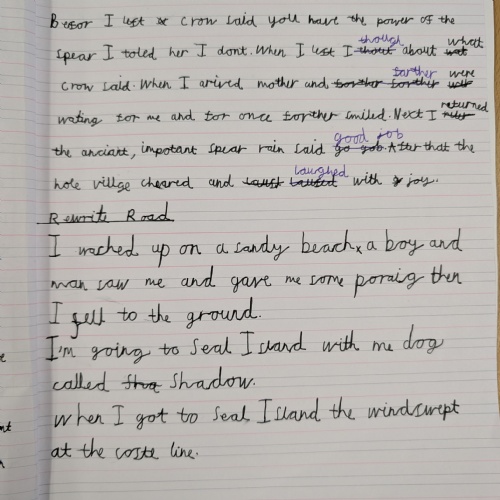 Besor I left Crow said you have the power of the
spear I toled her I dont. When I left I though about what
Crow said. When I arived mother and farther were
wating for me and for once farther smiled. Next I returned
the anciant, impotant spear rain said good job. After that the
hole villge cheared and laughed with joy.
Rewrite Road
I wached up on a sandy beach, a boy and
man saw me and gave me some poraig then
I fell to the ground.
I'm going to Seal Island with me dog
called Shadow.
When I got to Seal Island the windswept
at the coste line.